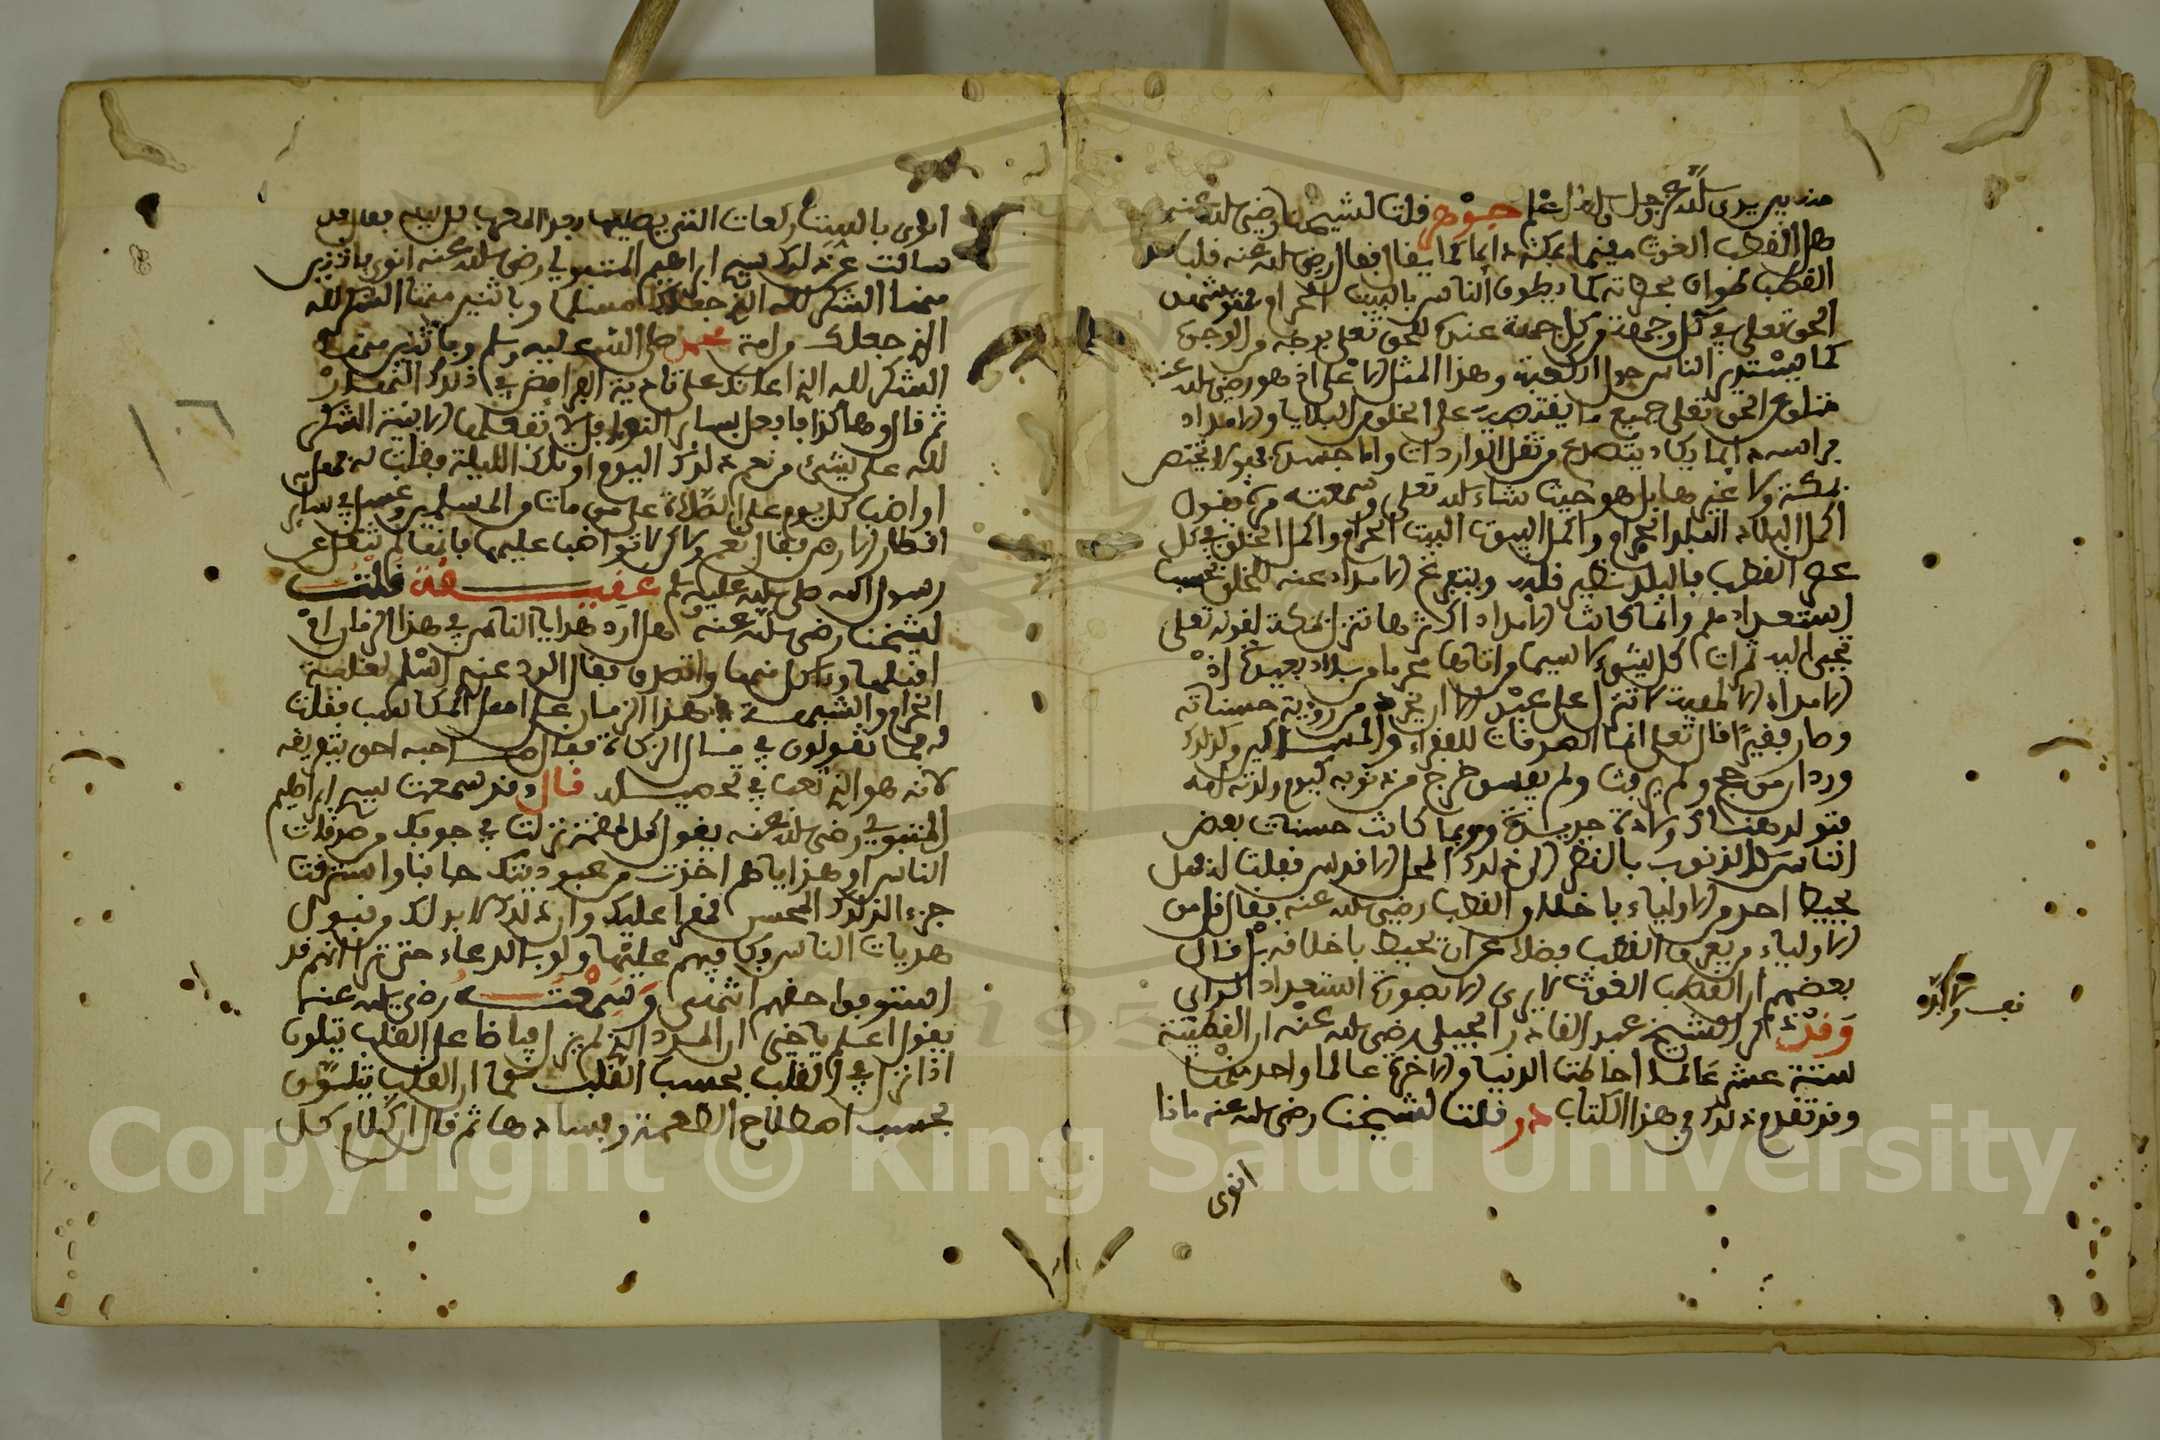 منه بين يدي الله عز وجل والله اعلم جوهر قلت لشيخنا رضي الله عنه
هل القطب الغوث مقيم بمكة دايما كما يقال فقال رضي الله عنه قلب
القطب طواف بحضرته كما يطوف الناس بالبيت الحرام فهو يشهد
الحق تعلى في كل وجهة ومن كل جهة
كما يستدير الناس حول الكعبة ولله المثل الاعلى اذ هو رضي الله عنه
متلوع الحق تعلى جميع ما يفيضه على الخلق من البلايا والامداد
براسه دايما يكاد يتصدع من ثقل الواردات واما جسده فهو لا يختص
بمكة ولا غيرها بل هو حيث شاء الله تعلى وسمعته مرة يقول
اكمل البلاد البلد الحرام واكمل البيوت البيت الحرام واكمل الخلق في كل
عصر القطب فالبلد نظير قلبه ويتفرع الامداد عنه للخلق بحسب
استعدادهم وانما كانت الامداد اكثرها تنزل بمكة لقوله تعلى
تجبى اليه ثمرات كل شيء لا سيما من اتاها محرما من بلاد بعيدة اذ
الامداد الالهية لا تنزل على عبد الا ان تجرد من رؤية حسناته
وصار فقيرا قال تعلى انما الصدقات للفقراء والمساكين وكذلك
ورد ان من حج ولم يرفث ولم يفسق خرج من ذنوبه كيوم ولدته امه
فتولد هناك ولادة جديدة وربما كانت حسنات بعض
الناس كالذنوب بالنظر الى ذلك المحل الاقدس فقلت له فهل
يحيط احد من الاولياء باخلاق القطب رضي الله عنه فقال قل من
الاولياء من يعرف القطب فضلا عن ان يحيط باخلاقه بل قال
بعضهم ان القطب الغوث لا يرى الا بصورة استعداد الرائي
وقد ذكر الشيخ عبد القادر الجيلي رضي الله عنه ان للقطبية
ستة عشر عالما احاطت الدنيا والاخرة عالم واحد منها
وقد تقدم ذلك في هذا الكتاب در قلت لشيخنا رضي الله عنه ماذا
انوي
انوي بالست ركعات التي يصليها بعد المغرب قبل فقال قد
سالت عن ذلك سيدي ابراهيم المتبولي رضي الله عنه انوي باثنين
منها الشكر لله الذي جعلك مسلما وباثنين منها الشكر لله
الذي جعلك من امة محمد صلى الله عليه وسلم وباثنين منها
الشكر لله الذي اعانك على تادية الفرايض في ذلك النهار
ثم قال وهاكذا فافعل بساير النوافل لا تفعلها الا بنية الشكر
لله على شيء من نعم ذلك اليوم او تلك الليلة فقلت له فهل
اواضب كل يوم على الصلاة على من مات من المسلمين وغسل في ساير
اقطار الارض فقال نعم ولاكن لا تواضب عليها فانها لم تنقل عن
رسول الله صلى الله عليه وسلم عقيقة قلت
لشيخنا رضي الله عنه هل ارد هدايا الناس في هذا الزمان او
اقبلها وناكل منها واتصدق فقال الرد عنهم اسلم لغلبة
الحرام والشبهة في هذا الزمان على اهل المكاسب فقلت
له فما تقولون في مال الزكاة فقال صاحبه احق بتفريقه
لانه هو الذي تعب في تحصيله قال وقد سمعت سيدي ابراهيم
المتبولي رضي الله عنه يقول كل لقمة نزلت في جوفك من صدقات
الناس او هداياهم اخذت من عبوديتك جانبا واسترقت
جزءا لذلك المحسن قهرا عليك وان لابد لك من قبول
هديات الناس وكافيهم عليها ولو بالدعاء حتى ترا انهم قد
استوفوا حقهم انتهى وسمعته رضي الله عنه
يقول اعلم يا اخي ان المدد الذي لم يزل فياضا على القلب يتلون
اذا نزل في القلب بحسب القلب كما ان القلب يتلون
بحسب اصطلاح الطعمة وفسادها ثم قال ان كلام كل